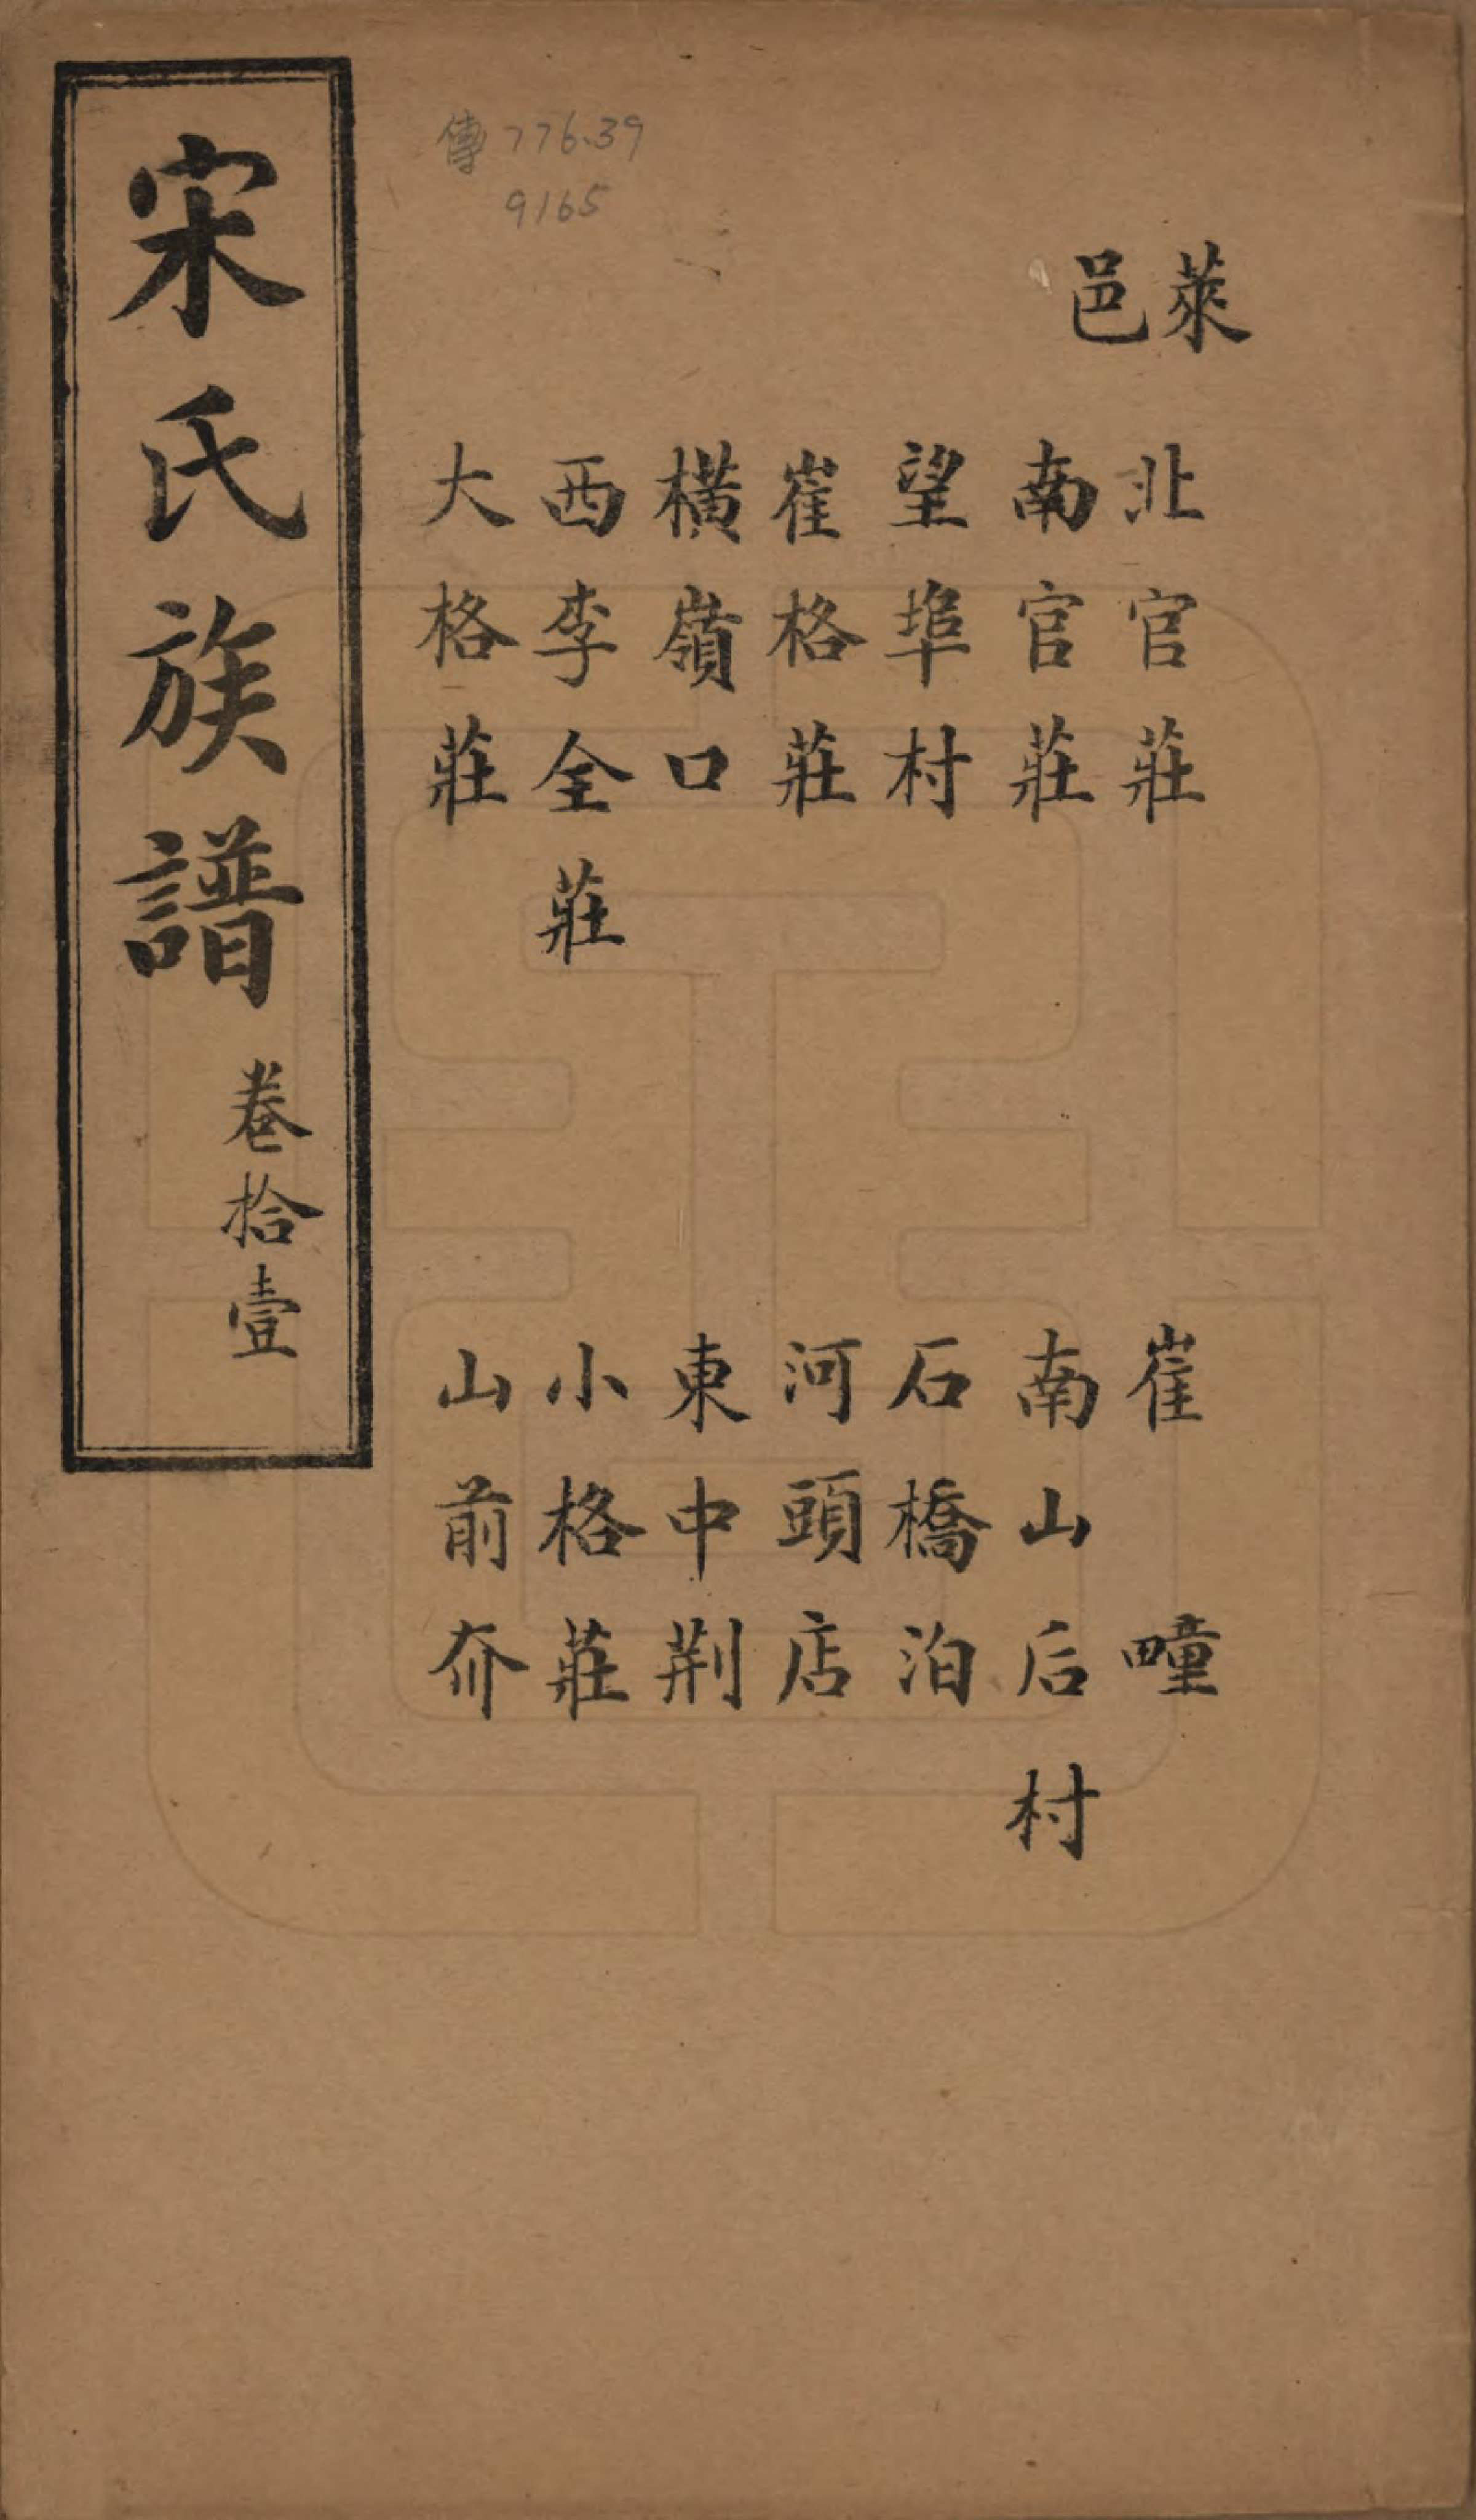 萊
邑
北官莊
南官莊
望埠村
崔格莊
橫嶺口
西李全莊
大格莊
崔疃
南山后村
石橋泊
河頭店
東中荆
小格莊
山前夼
傳776.39
9165
宋氏族譜 卷拾壹